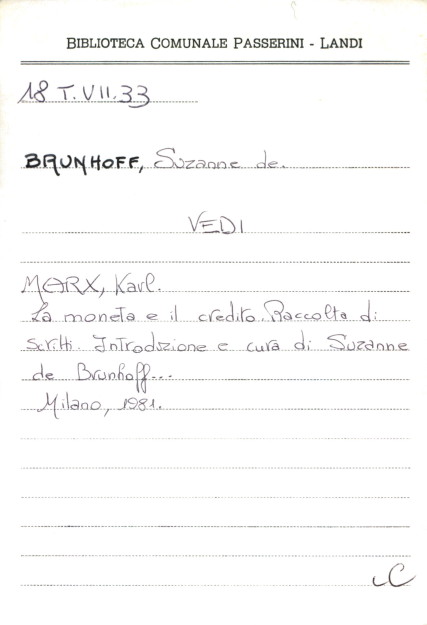 BIBLIOTECA COMUNALE PASSERINI - LANDI
18 T.VII.33
BRUNHOFF, Suzanne de.
VEDI
MARX, Karl.
La moneta e il credito. Raccolta di
scritti. Introduzione e cura di Suzanne
de Brunhoff...
Milano, 1981.